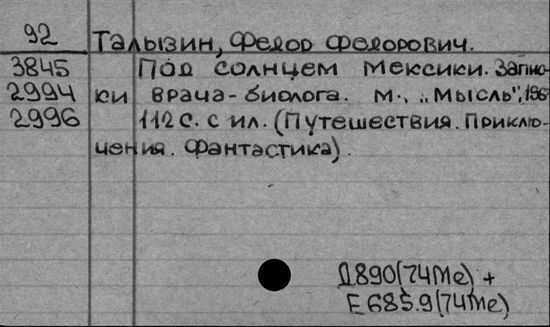 92 Талызин, Федор Федорович.
3845 Под солнцем Мексики. Запис-
2994 ки врача-биолога. М., „Мысль",
2996 112 с. с ил. (Путешествия. Приклю-
чения. Фантастика).
Д890(74Ме) +
Е685.9(74Ме)